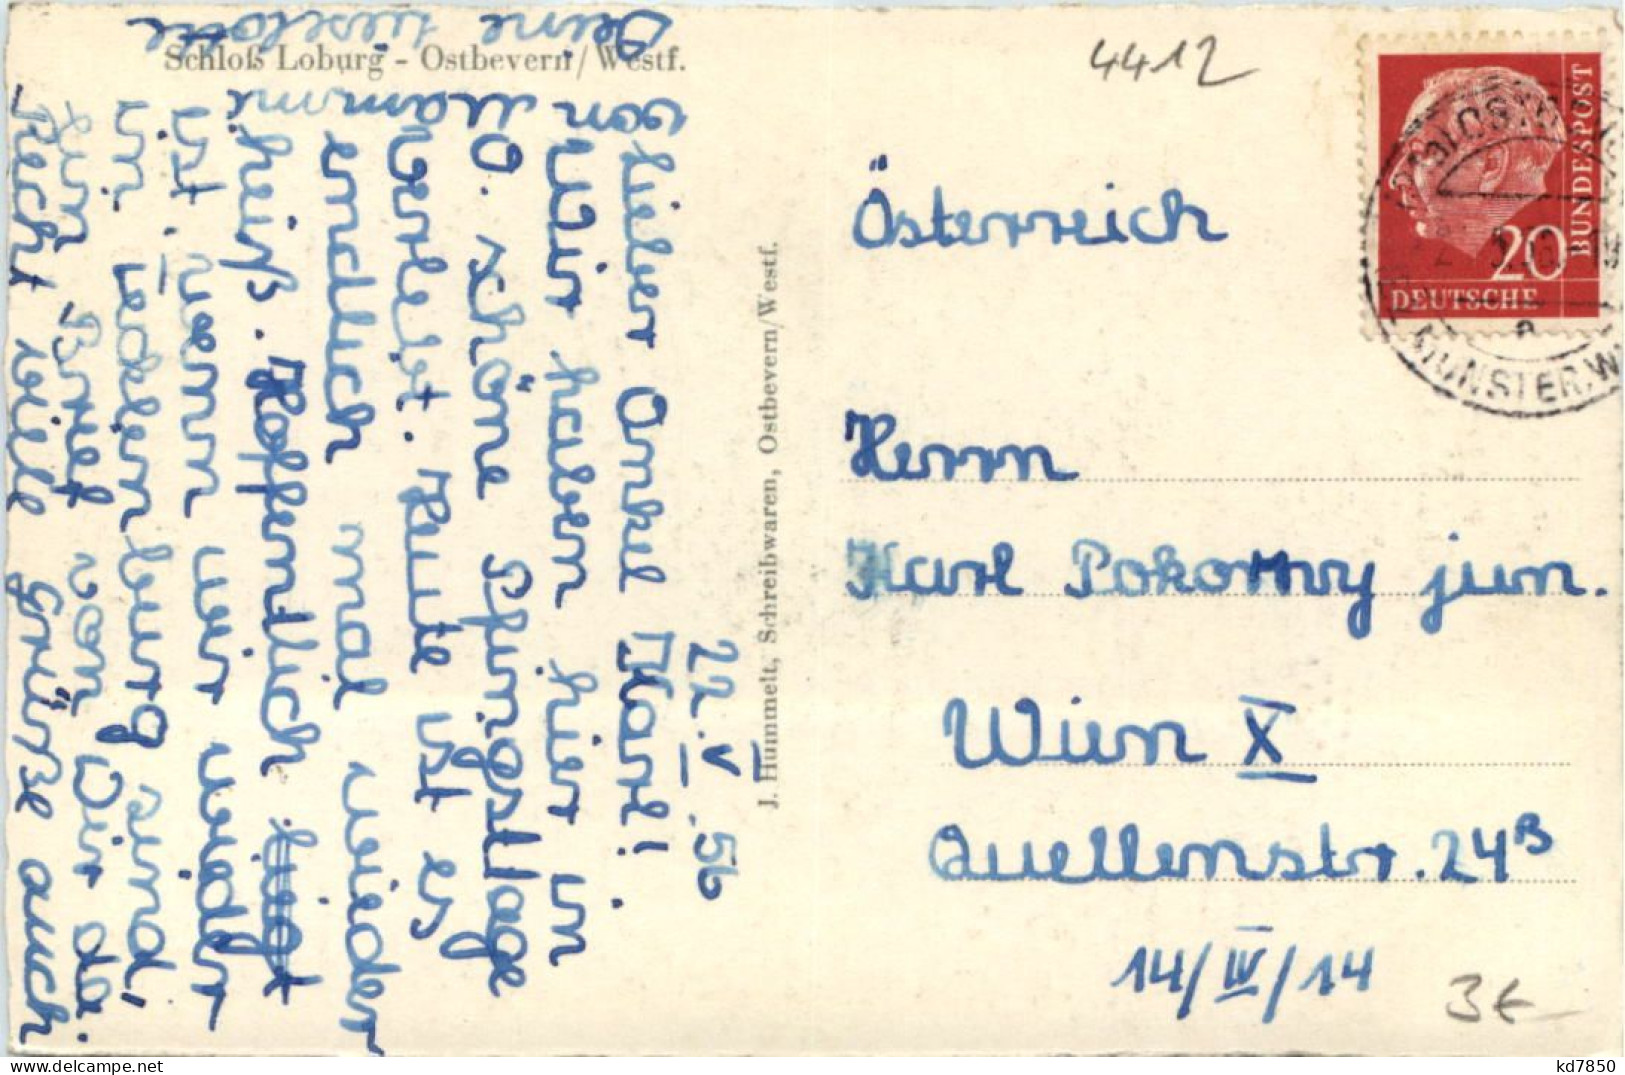 Schloß Loburg - Ostbevern/Westf.
J. Hummelt, Schreibwaren, Ostbevern/Westf.
22.V.56
Lieber Onkel Karl!
Wir haben hier in
O. schöne Pfingsttage
verlebt. Heute ist es
endlich mal wieder
heiß. Hoffentlich
ist, wenn wir wieder
in Ieckenburg sind,
ein Brief von Dir da.
Recht viele Grüße auch
von Mammi
Deine Lieselotte
4412
DEUTSCHE
BUNDESPOST
20
MÜNSTER, W
Österreich
Herrn
Karl Pokorny jun.
Wien X
Quellenstr. 24B
14/IV/14
3€
kd7850